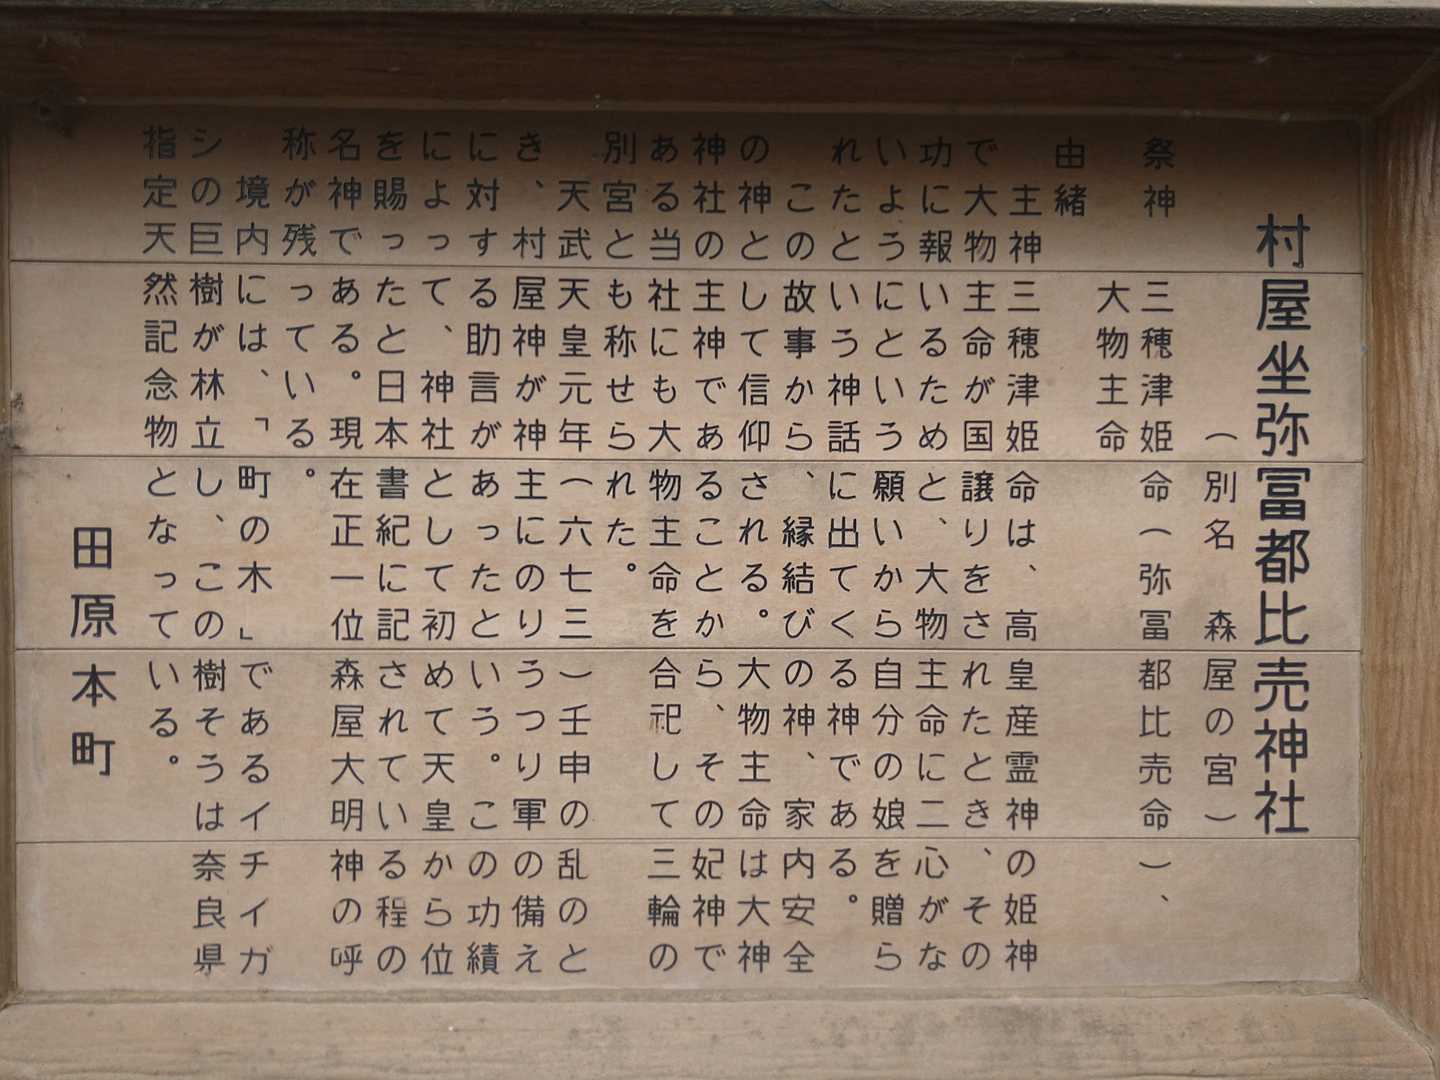 村屋坐弥冨都比売神社
（別名　森屋の宮）
祭神　三穂津姫命（弥冨都比売命）、
大物主命
由緒
主神三穂津姫命は、高皇産霊神の姫神
で大物主命が国譲りをされたとき、その
功に報いるためと、大物主命に二心がな
いようにという願いから自分の娘を贈ら
れたという神話に出てくる神である。
この故事から、縁結びの神、家内安全
の神として信仰される。大物主命は大神
神社の主神であることから、その妃神で
ある当社にも大物主命を合祀して三輪の
別宮とも称せられた。
天武天皇元年（六七三）壬申の乱のと
き、村屋神が神主にのりうつり軍の備え
に対する助言があったという。この功績
によって、神社として初めて天皇から位
を賜ったと日本書紀に記されている程の
名神である。現在正一位森屋大明神の呼
称が残っている。
境内には、「町の木」であるイチイガ
シの巨樹が林立し、この樹そうは奈良県
指定天然記念物となっている。
田原本町